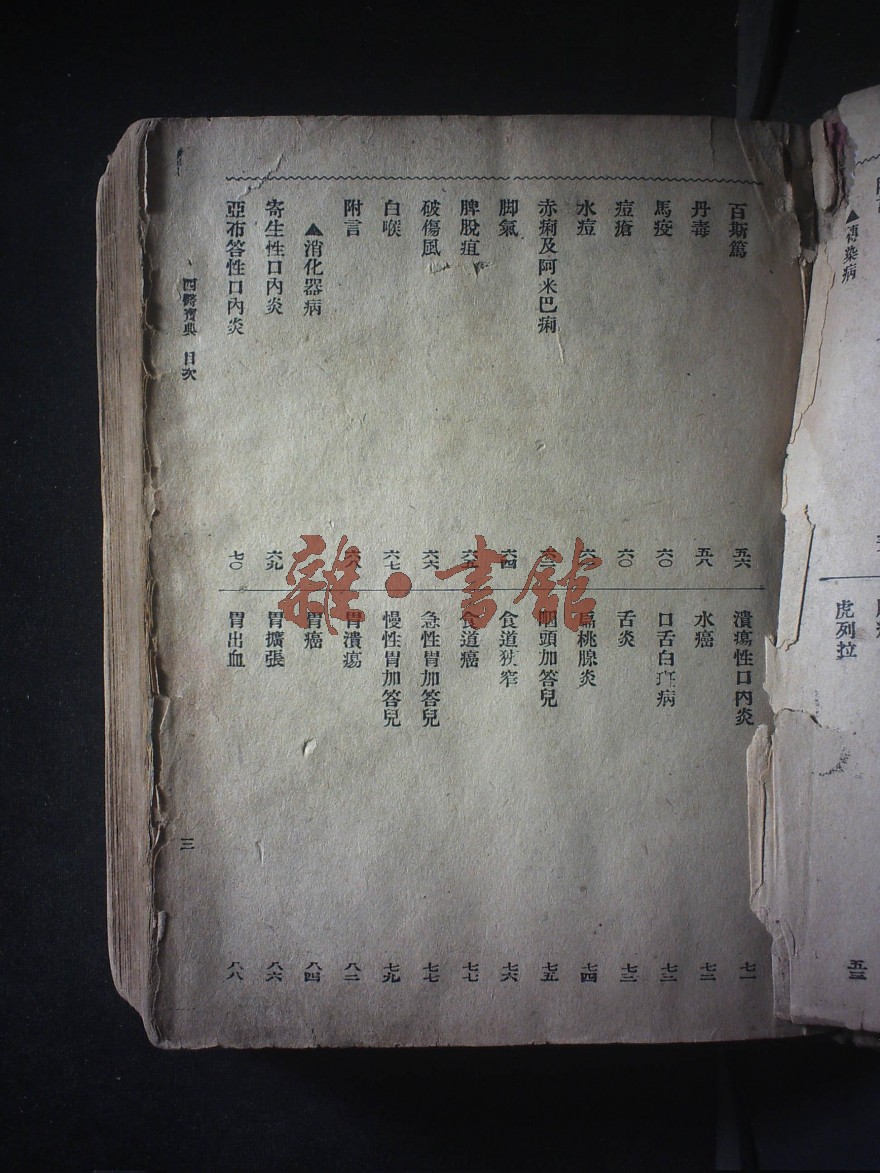 ▲傳染病
虎列拉
五三
百斯篤 五六
丹毒 五八
馬疫 六〇
痘瘡 六〇
水痘
赤痢及阿米巴痢
脚氣 六四
脾脫疽 六五
破傷風 六六
白喉 六七
附言 六八
▲消化器病
寄生性口內炎 六九
亞布答性口內炎 七〇
潰瘍性口內炎 七一
水癌 七二
口舌白斑病 七二
舌炎 七三
扁桃腺炎 七四
咽頭加答兒 七五
食道狹窄 七六
食道癌 七七
急性胃加答兒 七七
慢性胃加答兒 七九
胃潰瘍 八二
胃癌 八四
胃擴張 八六
胃出血 八八
西醫寶典 目次
三
雜·書館